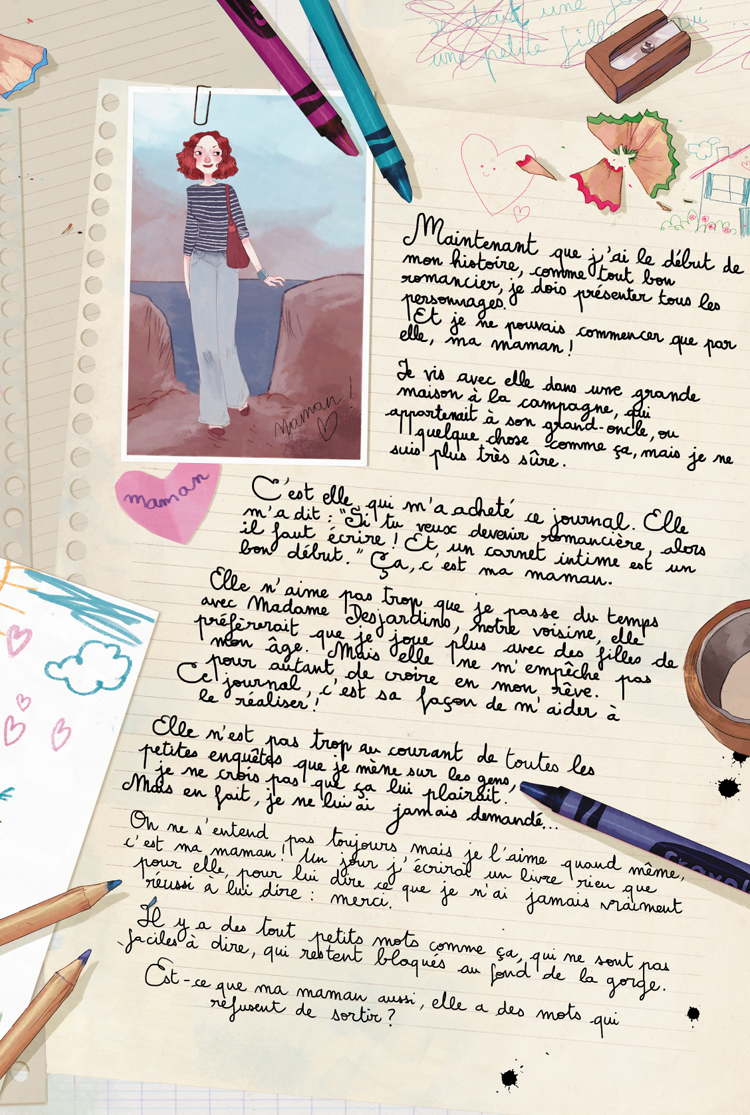 je
une petite fille
Maintenant que j'ai le début de
mon histoire, comme tout bon
romancier, je dois présenter tous les
personnages.
Et je ne pouvais commencer que par
elle, ma maman !
Je vis avec elle dans une grande
maison à la campagne, qui
appartenait à son grand-oncle, ou
quelque chose comme ça, mais je ne
suis plus très sûre.
maman !
maman
C'est elle qui m'a acheté ce journal. Elle
m'a dit : "Si tu veux devenir romancière, alors
il faut écrire ! Et, un carnet intime est un
bon début." Ça, c'est ma maman.
Elle n'aime pas trop que je passe du temps
avec Madame Desjardins, notre voisine, elle
préférerait que je joue plus avec des filles de
mon âge. Mais elle ne m'empêche pas
pour autant, de croire en mon rêve.
Ce journal, c'est sa façon de m'aider à
le réaliser !
Elle n'est pas trop au courant de toutes les
petites enquêtes que je mène sur les gens,
je ne crois pas que ça lui plairait.
Mais en fait, je ne lui ai jamais demandé...
On ne s'entend pas toujours mais je l'aime quand même,
c'est ma maman ! Un jour j'écrirai un livre rien que
pour elle, pour lui dire ce que je n'ai jamais vraiment
réussi à lui dire : merci.
Il y a des tout petits mots comme ça, qui ne sont pas
faciles à dire, qui restent bloqués au fond de la gorge.
Est-ce que ma maman aussi, elle a des mots qui
refusent de sortir ?